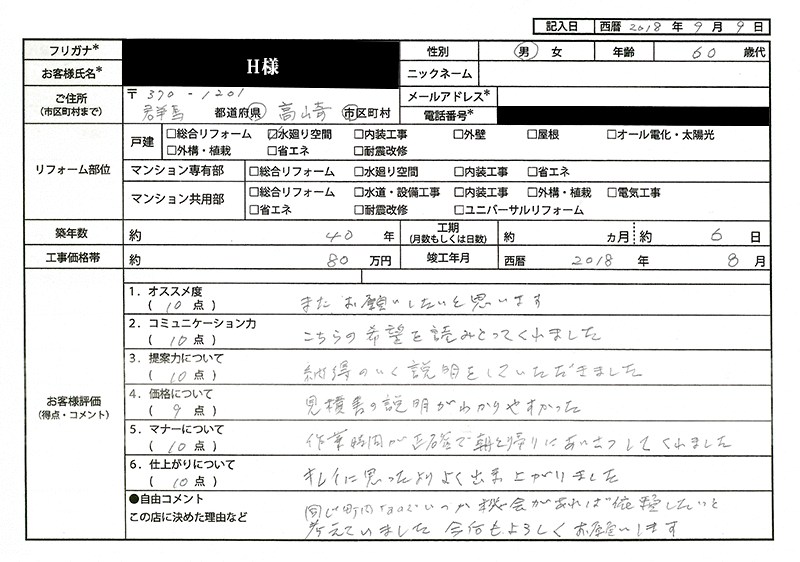 記入日 西暦 2018 年 9 月 9 日
フリガナ* 性別 男 女 年齢 60 歳代
お客様氏名* H様 ニックネーム
ご住所 (市区町村まで) 〒370-1201 メールアドレス*
群馬 都道府県 高崎 市区町村 電話番号*
リフォーム部位
戸建 □総合リフォーム ☑水廻り空間 □内装工事 □外壁 □屋根 □オール電化・太陽光
□外構・植栽 □省エネ □耐震改修
マンション専有部 □総合リフォーム □水廻り空間 □内装工事 □省エネ
マンション共用部 □総合リフォーム □水道・設備工事 □内装工事 □外構・植栽 □電気工事
□省エネ □耐震改修 □ユニバーサルリフォーム
築年数 約 40 年 工期 (月数もしくは日数) 約 ヵ月 約 6 日
工事価格帯 約 80 万円 竣工年月 西暦 2018 年 8 月
お客様評価 (得点・コメント)
1．オススメ度
( 10 点 ) またお願いしたいと思います
2．コミュニケーション力
( 10 点 ) こちらの希望を読みとってくれました
3．提案力について
( 10 点 ) 納得のいく説明をしていただきました
4．価格について
( 9 点 ) 見積書の説明がわかりやすかった
5．マナーについて
( 10 点 ) 作業時間が正確で朝と帰りにあいさつしてくれました
6．仕上がりについて
( 10 点 ) キレイに思ったよりよく出来上がりました
●自由コメント
この店に決めた理由など
同じ町内なのでいつか機会があれば依頼したいと
考えていました 今后もよろしくお願いします